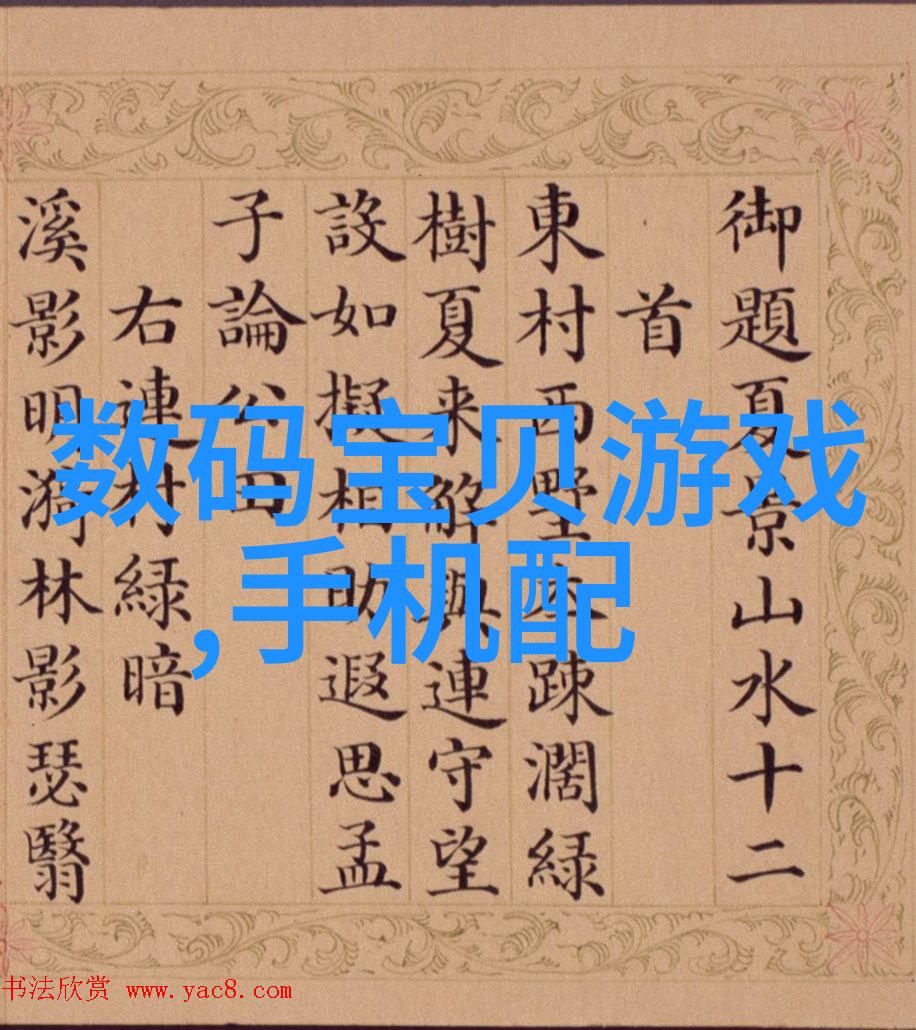 御題夏景山水十二
首
東村西墅疎濶緑
樹夏来解與連守望
設如擬相助遐思孟
子論公田
右連村緑暗
溪影明漪林影瑟翳
数码宝贝游戏
,手机配
书法欣赏 www.yac8.com